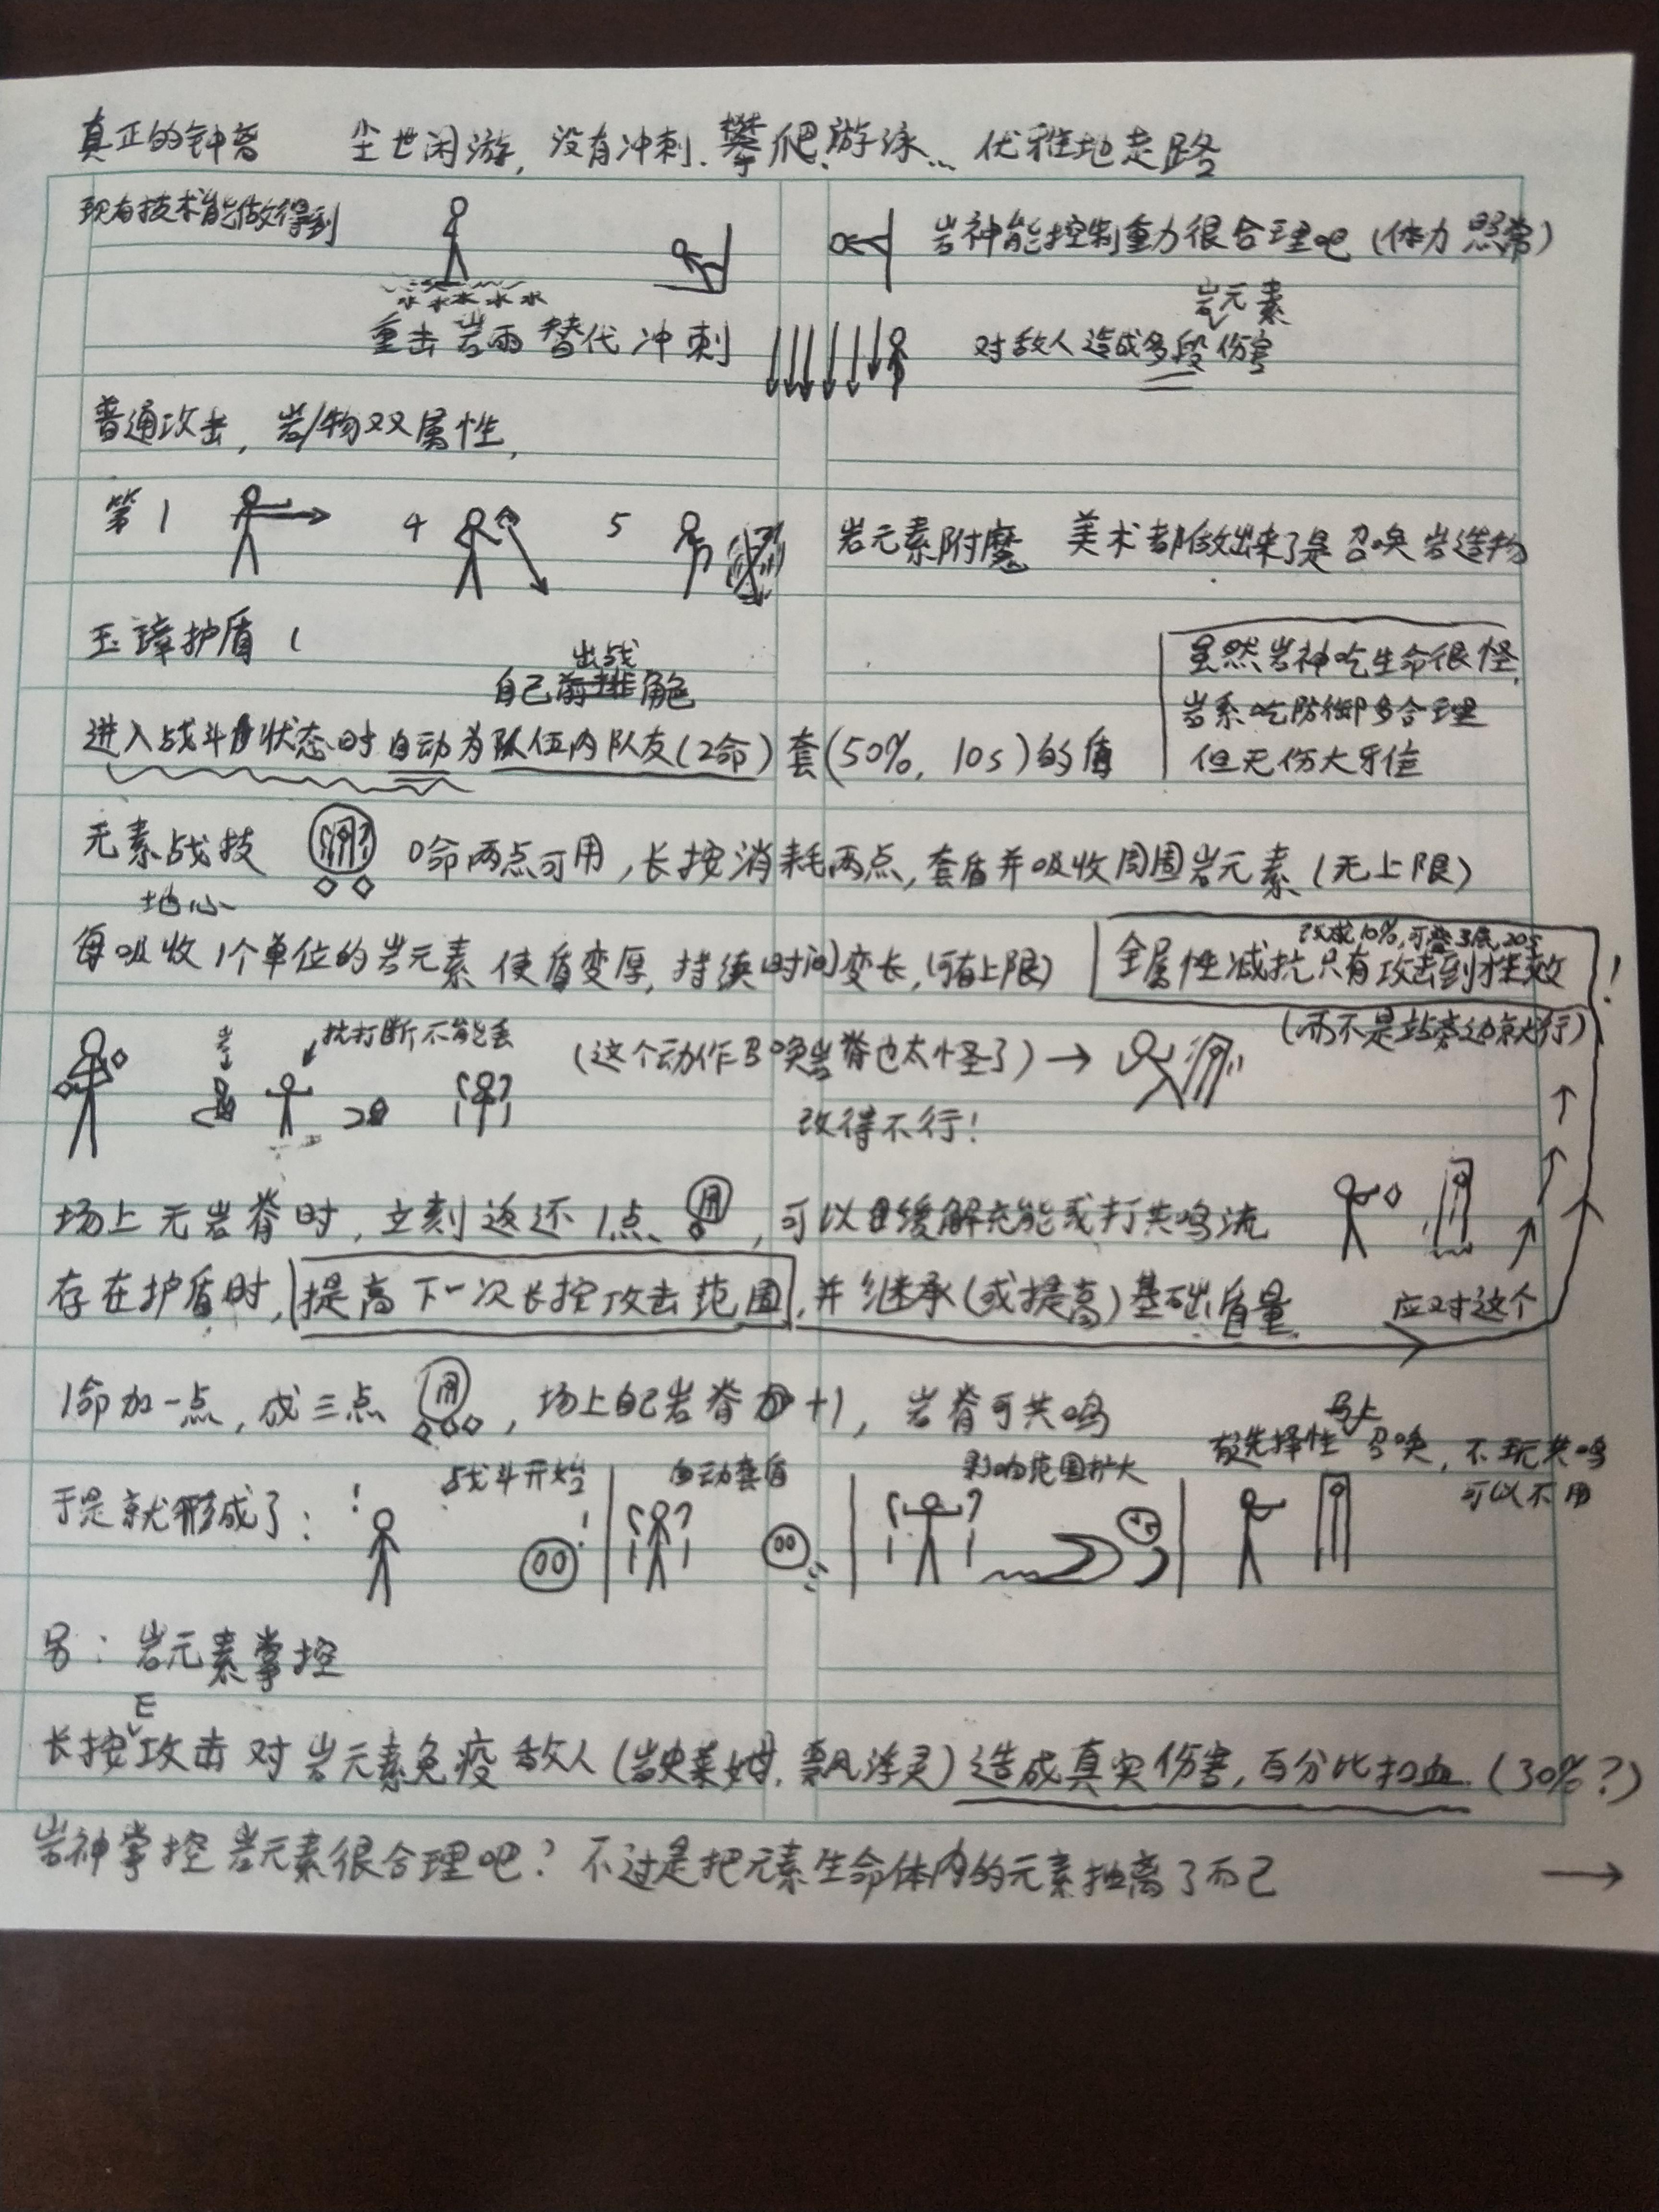 真正的钟离 尘世闲游,没有冲刺.攀爬、游泳… 优雅地走路
现有技术能做得到
岩神能控制重力很合理吧(体力照常)
水水水水水
重击岩雨替代冲刺
对敌人造成多段岩元素伤害
普通攻击,岩/物双属性,
第1 4 5 岩元素附魔 美术都做出来了是召唤岩造物
玉璋护盾(
虽然岩神吃生命很怪,
岩系吃防御多合理
但无伤大雅
自己出战角色
进入战斗状态时自动为队伍内队友(2命)套(50%,10s)的盾
元素战技 0命两点可用,长按消耗两点,套盾并吸收周围岩元素(无上限)
地心
每吸收1个单位的岩元素使盾变厚,持续时间变长,(有上限)
改成10%,可叠3层,20s
全属性减抗只有攻击到才生效!
(而不是站旁边就行)
岩
抗打断不能丢
(这个动作召唤岩脊也太怪了)→
改得不行!
场上无岩脊时,立刻返还1点,可以缓解充能或打共鸣流
存在护盾时,提高下一次长按攻击范围,并继承(或提高)基础盾量
应对这个
1命加一点,成三点,场上自己岩脊+1,岩脊可共鸣
于是就形成了:
! 战斗开始 !
自动套盾
影响范围扩大
有选择性马上召唤,不玩共鸣
可以不用
另:岩元素掌控
长按E攻击对岩元素免疫敌人(岩史莱姆,飘浮灵)造成真实伤害,百分比扣血(30%?)
岩神掌控岩元素很合理吧?不过是把元素生命体内的元素抽离了而已 →